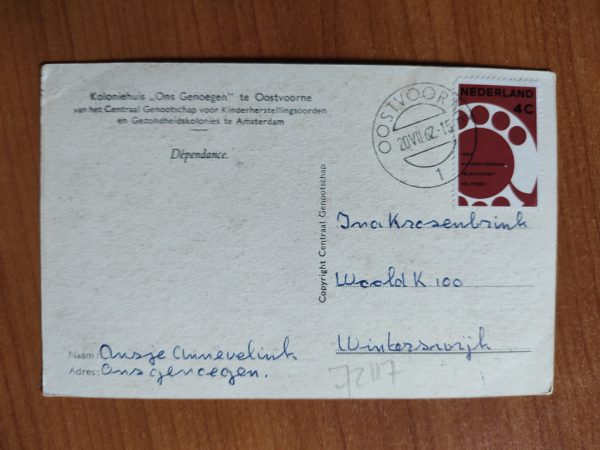 Koloniehuis „Ons Genoegen" te Oostvoorne
van het Centraal Genootschap voor Kinderherstellingsoorden
en Gezondheidskolonies te Amsterdam
Dépendance.
OOSTVOORNE
20.VII.62.-15
1
NEDERLAND
4C
1962
AUTOMATISERING
TELEFOONNET
VOLTOOID
Copyright Centraal Genootschap
Ina Krosenbrink
Woold K 100
Winterswijk
Naam: Ansje Annevelink
Adres: Ons genoegen.